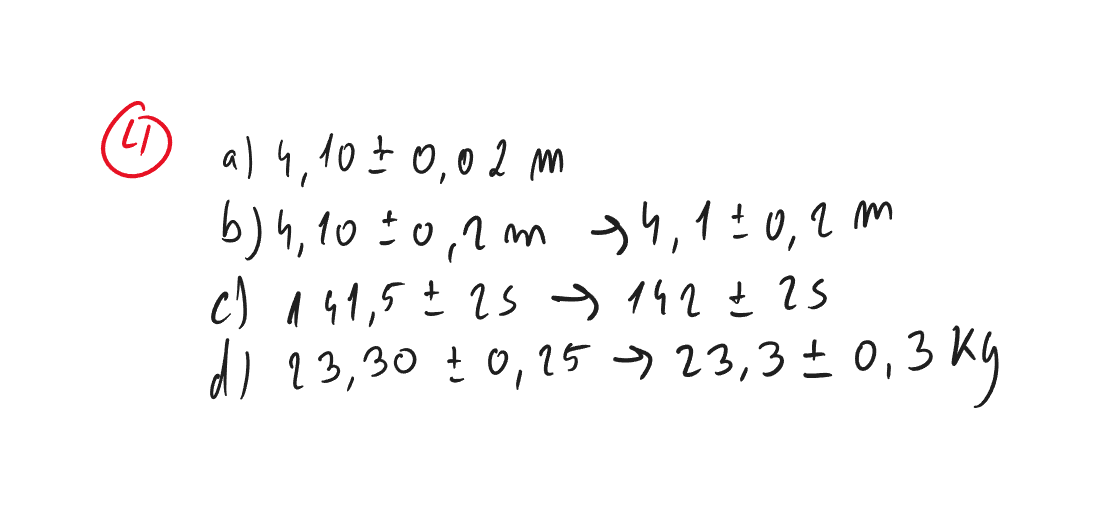 41
a) 4,10 ± 0,02 m
b) 4,10 ± 0,2 m → 4,1 ± 0,2 m
c) 141,5 ± 2s → 142 ± 2s
d) 23,30 ± 0,25 → 23,3 ± 0,3 Kg